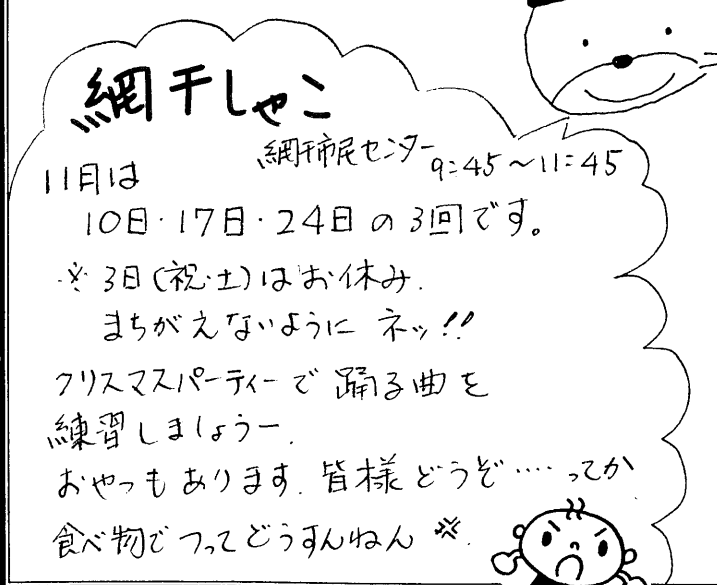 網干しゃこ
網干市民センター 9:45〜11:45
11月は
10日・17日・24日の3回です。
※ 3日(祝・土)はお休み.
まちがえないように ネッ!!
クリスマスパーティーで踊る曲を
練習しましょうー.
おやつもあります. 皆様どうぞ‥‥ってか
食べ物でつってどうすんねん